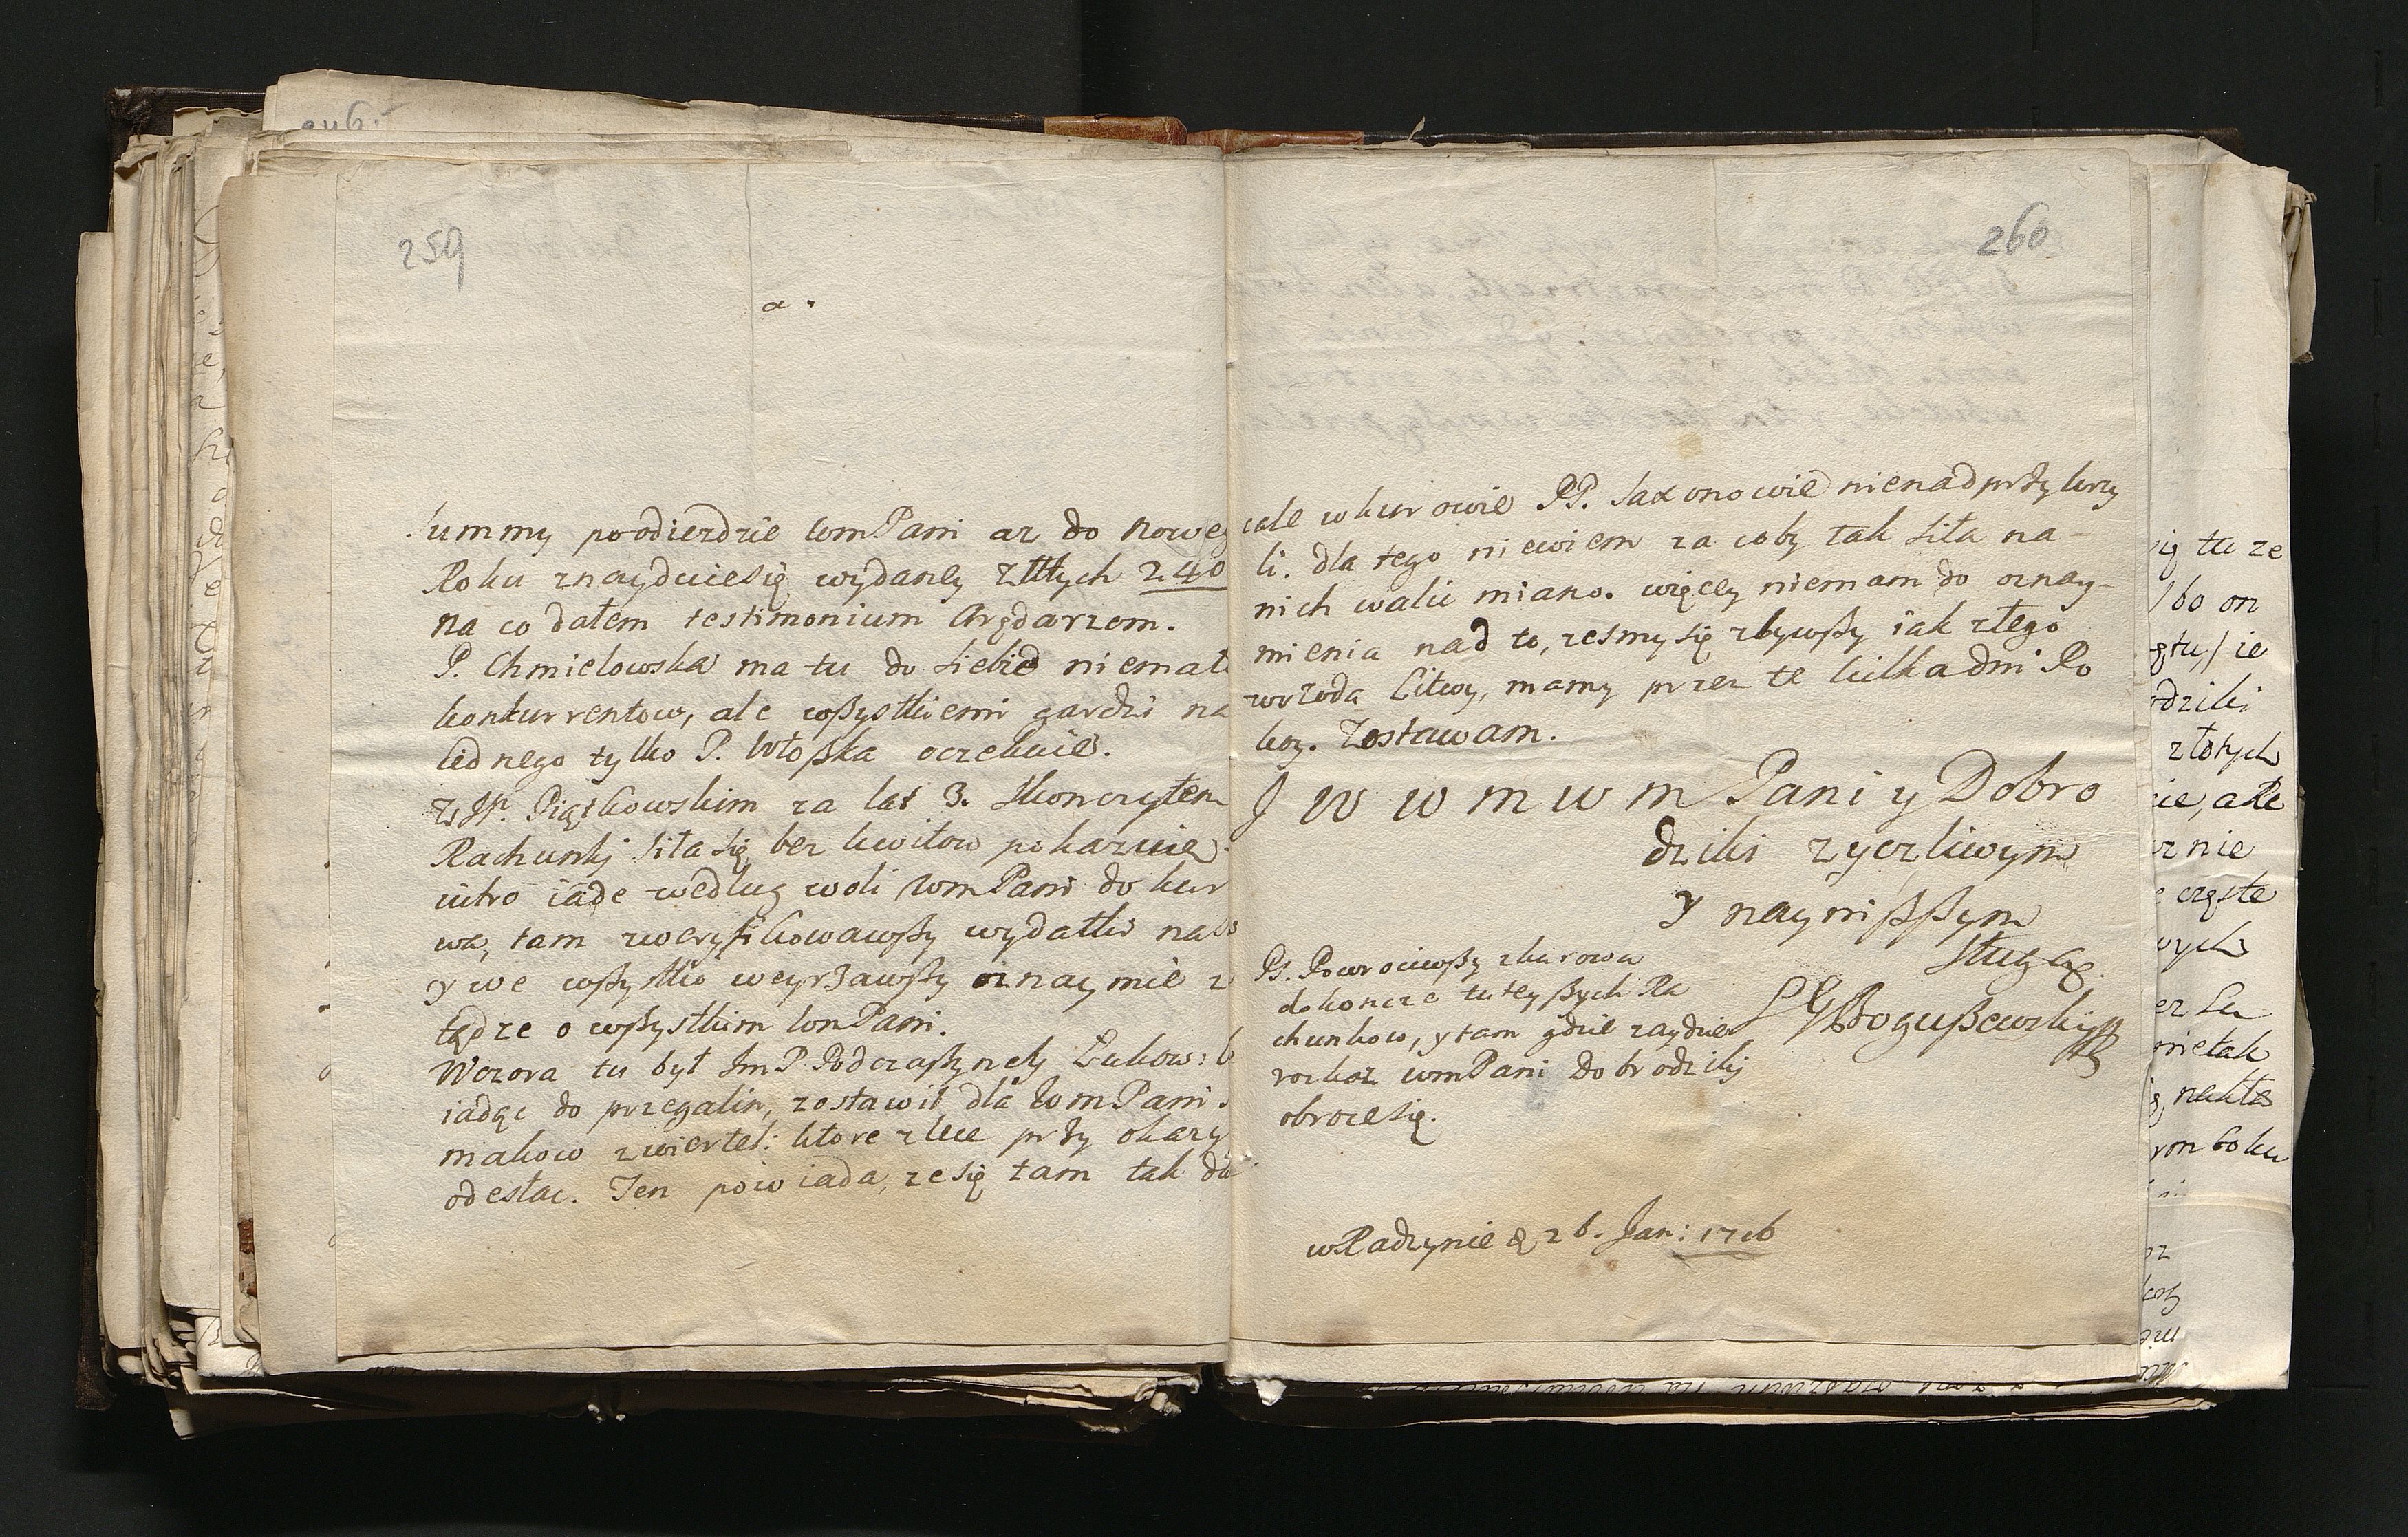 259
a.
summy poodiezdzie wmPani az do nowe
Roku znayduiesię wydaney Złłtych 240
na co dałem testimonium Arędarzom.
P. Chmielowska ma tu do siebie niemał
konkurrentow, ale wßystkiemi gardzi na
iednego tylko P. Włoßka oczekuie.
z JP. Piątkowskim za lat 3. skonczyłem
Rachunki siła się bez kwitow pokazuie.
iutro iade według woli wmPani do kur
wa, tam zweryfikowawßy wydatki
y we wßystko weyrzawßy oznaymie z
tądze o wßystkim wmPani.
Wczora tu był Jm P Podczaßyne Łukow:
iadąc do przegalin, zostawił dla WmPani
makow zwierteł: ktore zlece przy okazy
odesłac. Ten powiada, ze się tam tak
260
cale wkurowie PP. Saxonowie nienadprzykrzy
li. dla tego niewiem za coby tak siła na-
nich walic miano. więcey niemam do oznay-
mienia nad to, zesmy się zbywßy iak złego
wrzoda Litwy, mamy przez te kilka dni Po
koy. Zostawam.
J W W M W M Pani y Dobro
dziki zyczliwym
y naynißßym
sługą
S Bogußewski
Ps. Powrociwßy zkurowa
dokoncze tuteyßych Ra
chunkow, y tam gdzie zaydzie
rozkaz wmPani Dobrodziki
obroce się.
wRadzynie d 26. Jan: 1716